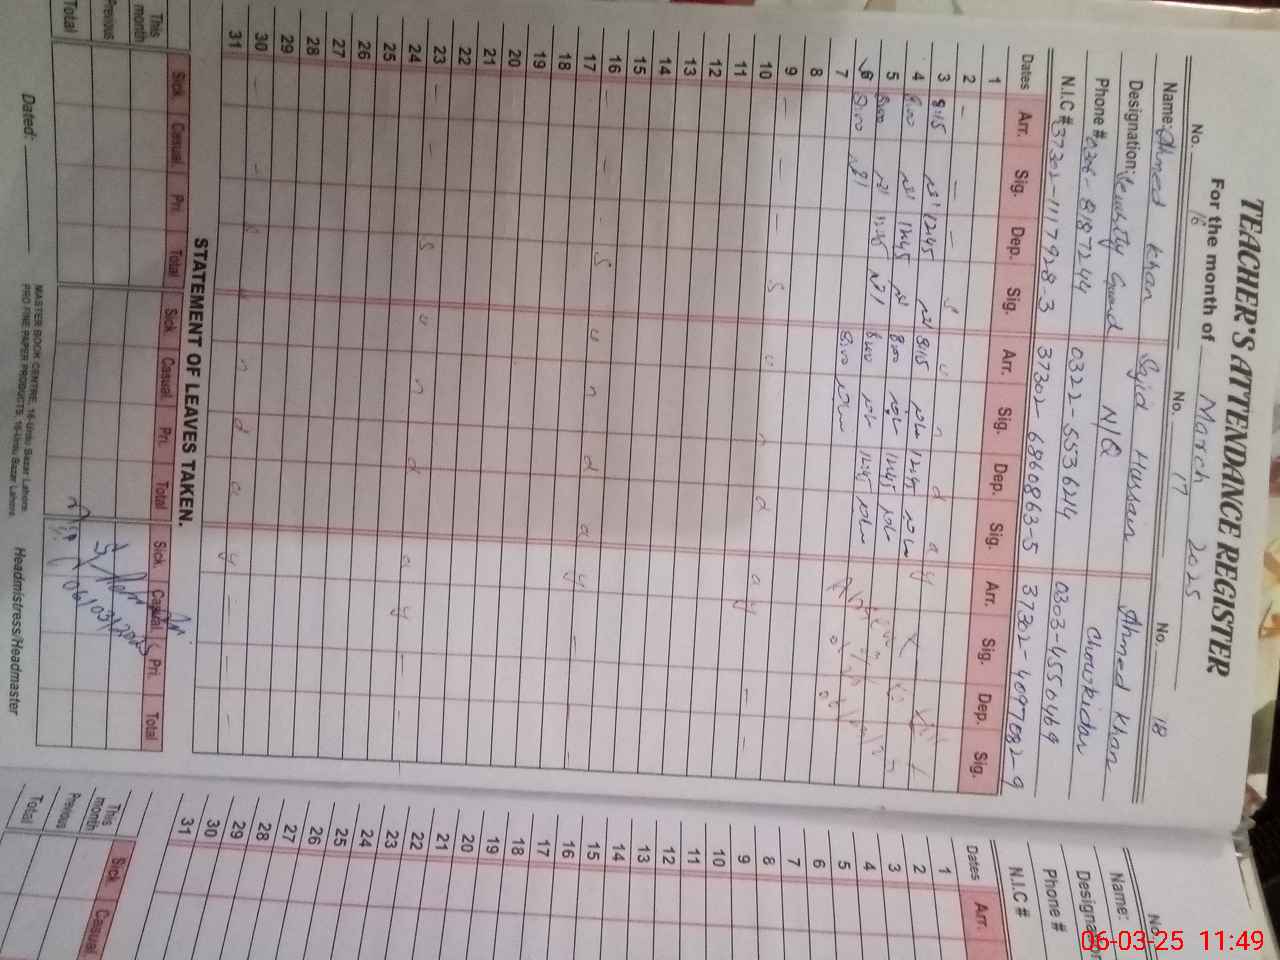 TEACHER'S ATTENDANCE REGISTER
For the month of March 2025
No. 16 No. 17 No. 18
Name: Ahmed Khan Sajid Hussain Ahmed Khan
Designation: Security Guard N/Q Chowkidar
Phone # 0306-8187244 0322-5536214 0303-4550469
N.I.C # 37302-1117928-3 37302-6860863-5 37302-4097082-9
Dates Arr. Sig. Dep. Sig. Arr. Sig. Dep. Sig. Arr. Sig. Dep. Sig.
1
2 — — — S u n d a y
3 8:15 12:45 8:15 12:45
4 8:00 12:45 8:00 12:45
5 8:00 12:45 8:00 12:45
6 8:00 8:00
7
8
9 — — — S u n d a y — —
10
11
12
13
14
15
16 — — S u n d a y — —
17
18
19
20
21
22
23 — S u n d a y — —
24
25
26
27
28
29
30 — — S u n d a y — — —
31
STATEMENT OF LEAVES TAKEN.
Sick. Casual. Pri. Total Sick. Casual. Pri. Total Sick. Casual. Pri. Total
This month
Previous
Total
06/03/2025
Dated: Headmistress/Headmaster
MASTER BOOK CENTRE, 16-Urdu Bazar Lahore.
PRO FINE PAPER PRODUCTS, 16-Urdu Bazar Lahore.
No.
Name:
Designation
Phone #
N.I.C #
Dates Arr.
1
2
3
4
5
6
7
8
9
10
11
12
13
14
15
16
17
18
19
20
21
22
23
24
25
26
27
28
29
30
31
Sick. Casual
This month
Previous
Total
06-03-25 11:49